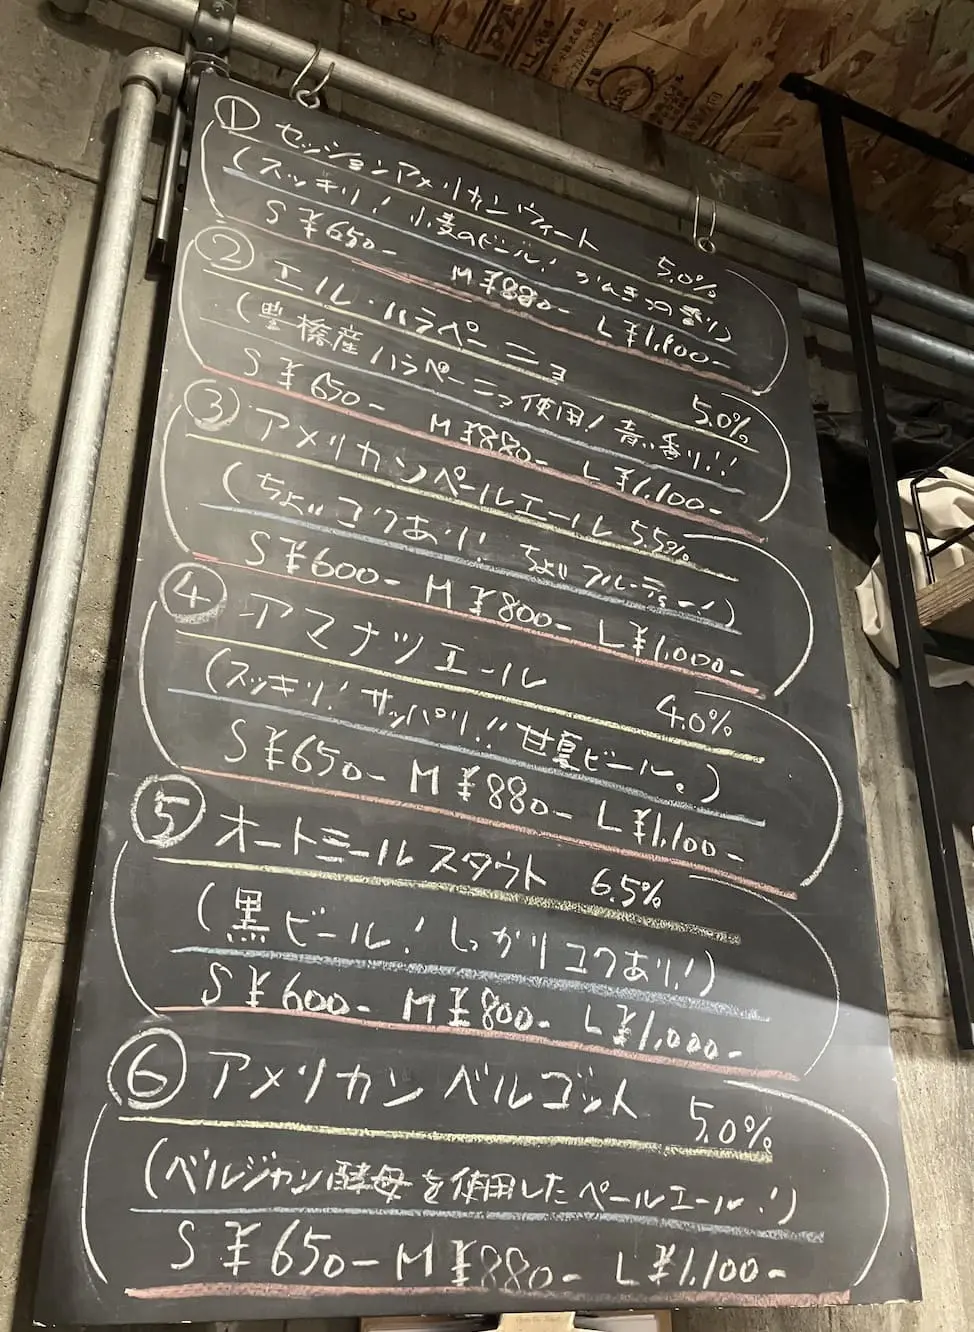 ① セッションアメリカンウィート 5.0%
(スッキリ! 小麦のビール! かんきつの香り)
S ¥650- M ¥880- L ¥1,100-
② エル・ハラペーニョ 5.0%
(豊橋産ハラペーニョ使用! 青い香り!!
S ¥650- M ¥880- L ¥1,100-
③ アメリカンペールエール 5.5%
(ちょいコクあり! ちょいフルーティー!)
S ¥600- M ¥800- L ¥1,000-
④ アマナツエール 4.0%
(スッキリ! サッパリ!! 甘夏ビール。)
S ¥650- M ¥880- L ¥1,100-
⑤ オートミールスタウト 6.5%
(黒ビール! しっかりコクあり!)
S ¥600- M ¥800- L ¥1,000-
⑥ アメリカンベルゴット 5.0%
(ベルジャン酵母を使用したペールエール!)
S ¥650- M ¥880- L ¥1,100-